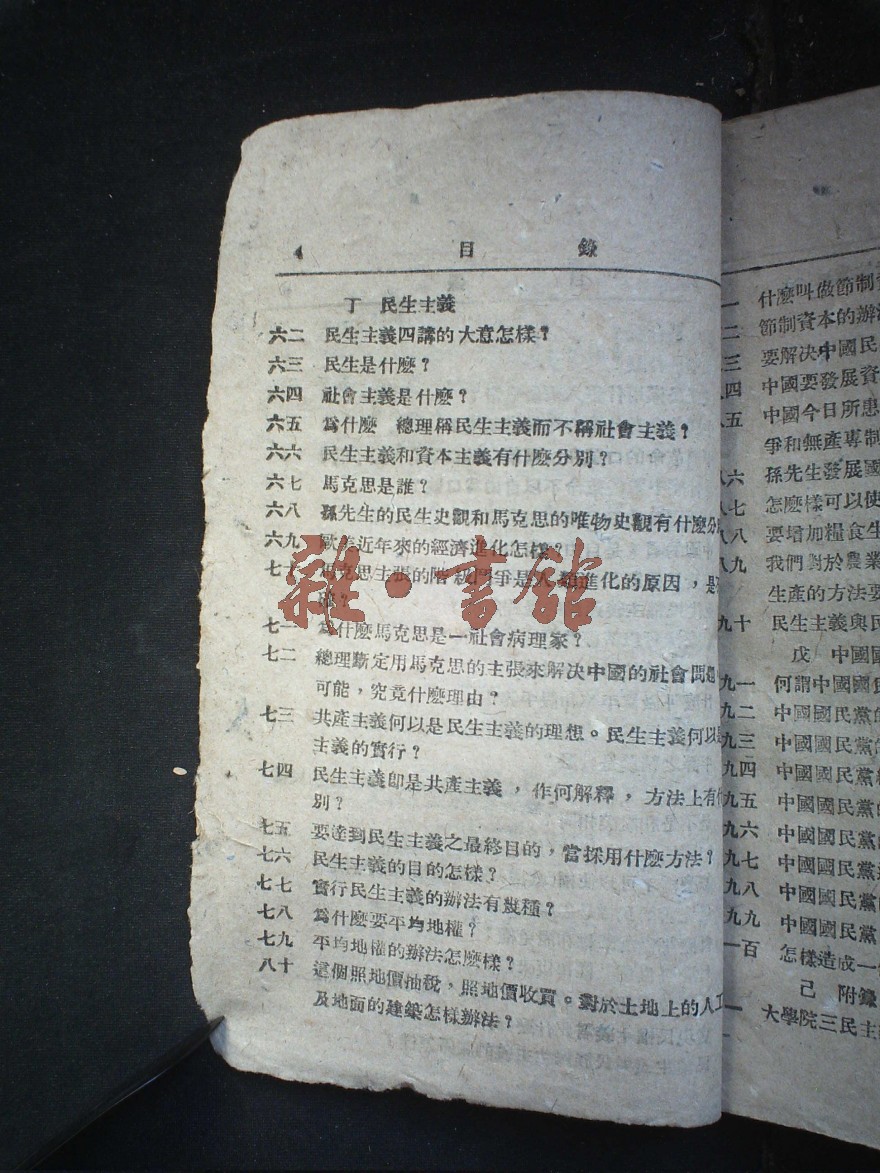 4 目 錄
丁 民生主義
六二 民生主義四講的大意怎樣？
六三 民生是什麽？
六四 社會主義是什麽？
六五 爲什麽 總理稱民生主義而不稱社會主義？
六六 民生主義和資本主義有什麽分別？
六七 馬克思是誰？
六八 孫先生的民生史觀和馬克思的唯物史觀有什麽分
六九 歐美近年來的經濟進化怎樣？
七十 馬克思主張的階級鬥爭是人類進化的原因，是
七一 爲什麽馬克思是一社會病理家？
七二 總理斷定用馬克思的主張來解决中國的社會問題
可能，究竟什麽理由？
七三 共產主義何以是民生主義的理想。民生主義何以
主義的實行？
七四 民生主義卽是共產主義，作何解釋，方法上有
別？
七五 要達到民生主義之最終目的，當採用什麽方法？
七六 民生主義的目的怎樣？
七七 實行民生主義的辦法有幾種？
七八 爲什麽要平均地權？
七九 平均地權的辦法怎麽樣？
八十 這個照地價抽稅，照地價收買。對於土地上的人工
及地面的建築怎樣辦法？
雜·書館
一 什麽叫做節制
二 節制資本的辦
三 要解決中國民
八四 中國要發展資
八五 中國今日所患
爭和無產專制
八六 孫先生發展國
八七 怎麽樣可以使
八八 要增加糧食生
八九 我們對於農業
生產的方法要
九十 民生主義與民
戊 中國國
九一 何謂中國國
九二 中國國民黨的
九三 中國國民黨的
九四 中國國民黨
九五 中國國民黨的
九六 中國國民黨的
九七 中國國民黨
九八 中國國民黨
九九 中國國民黨
一百 怎樣造成一
己 附錄
大學院三民主